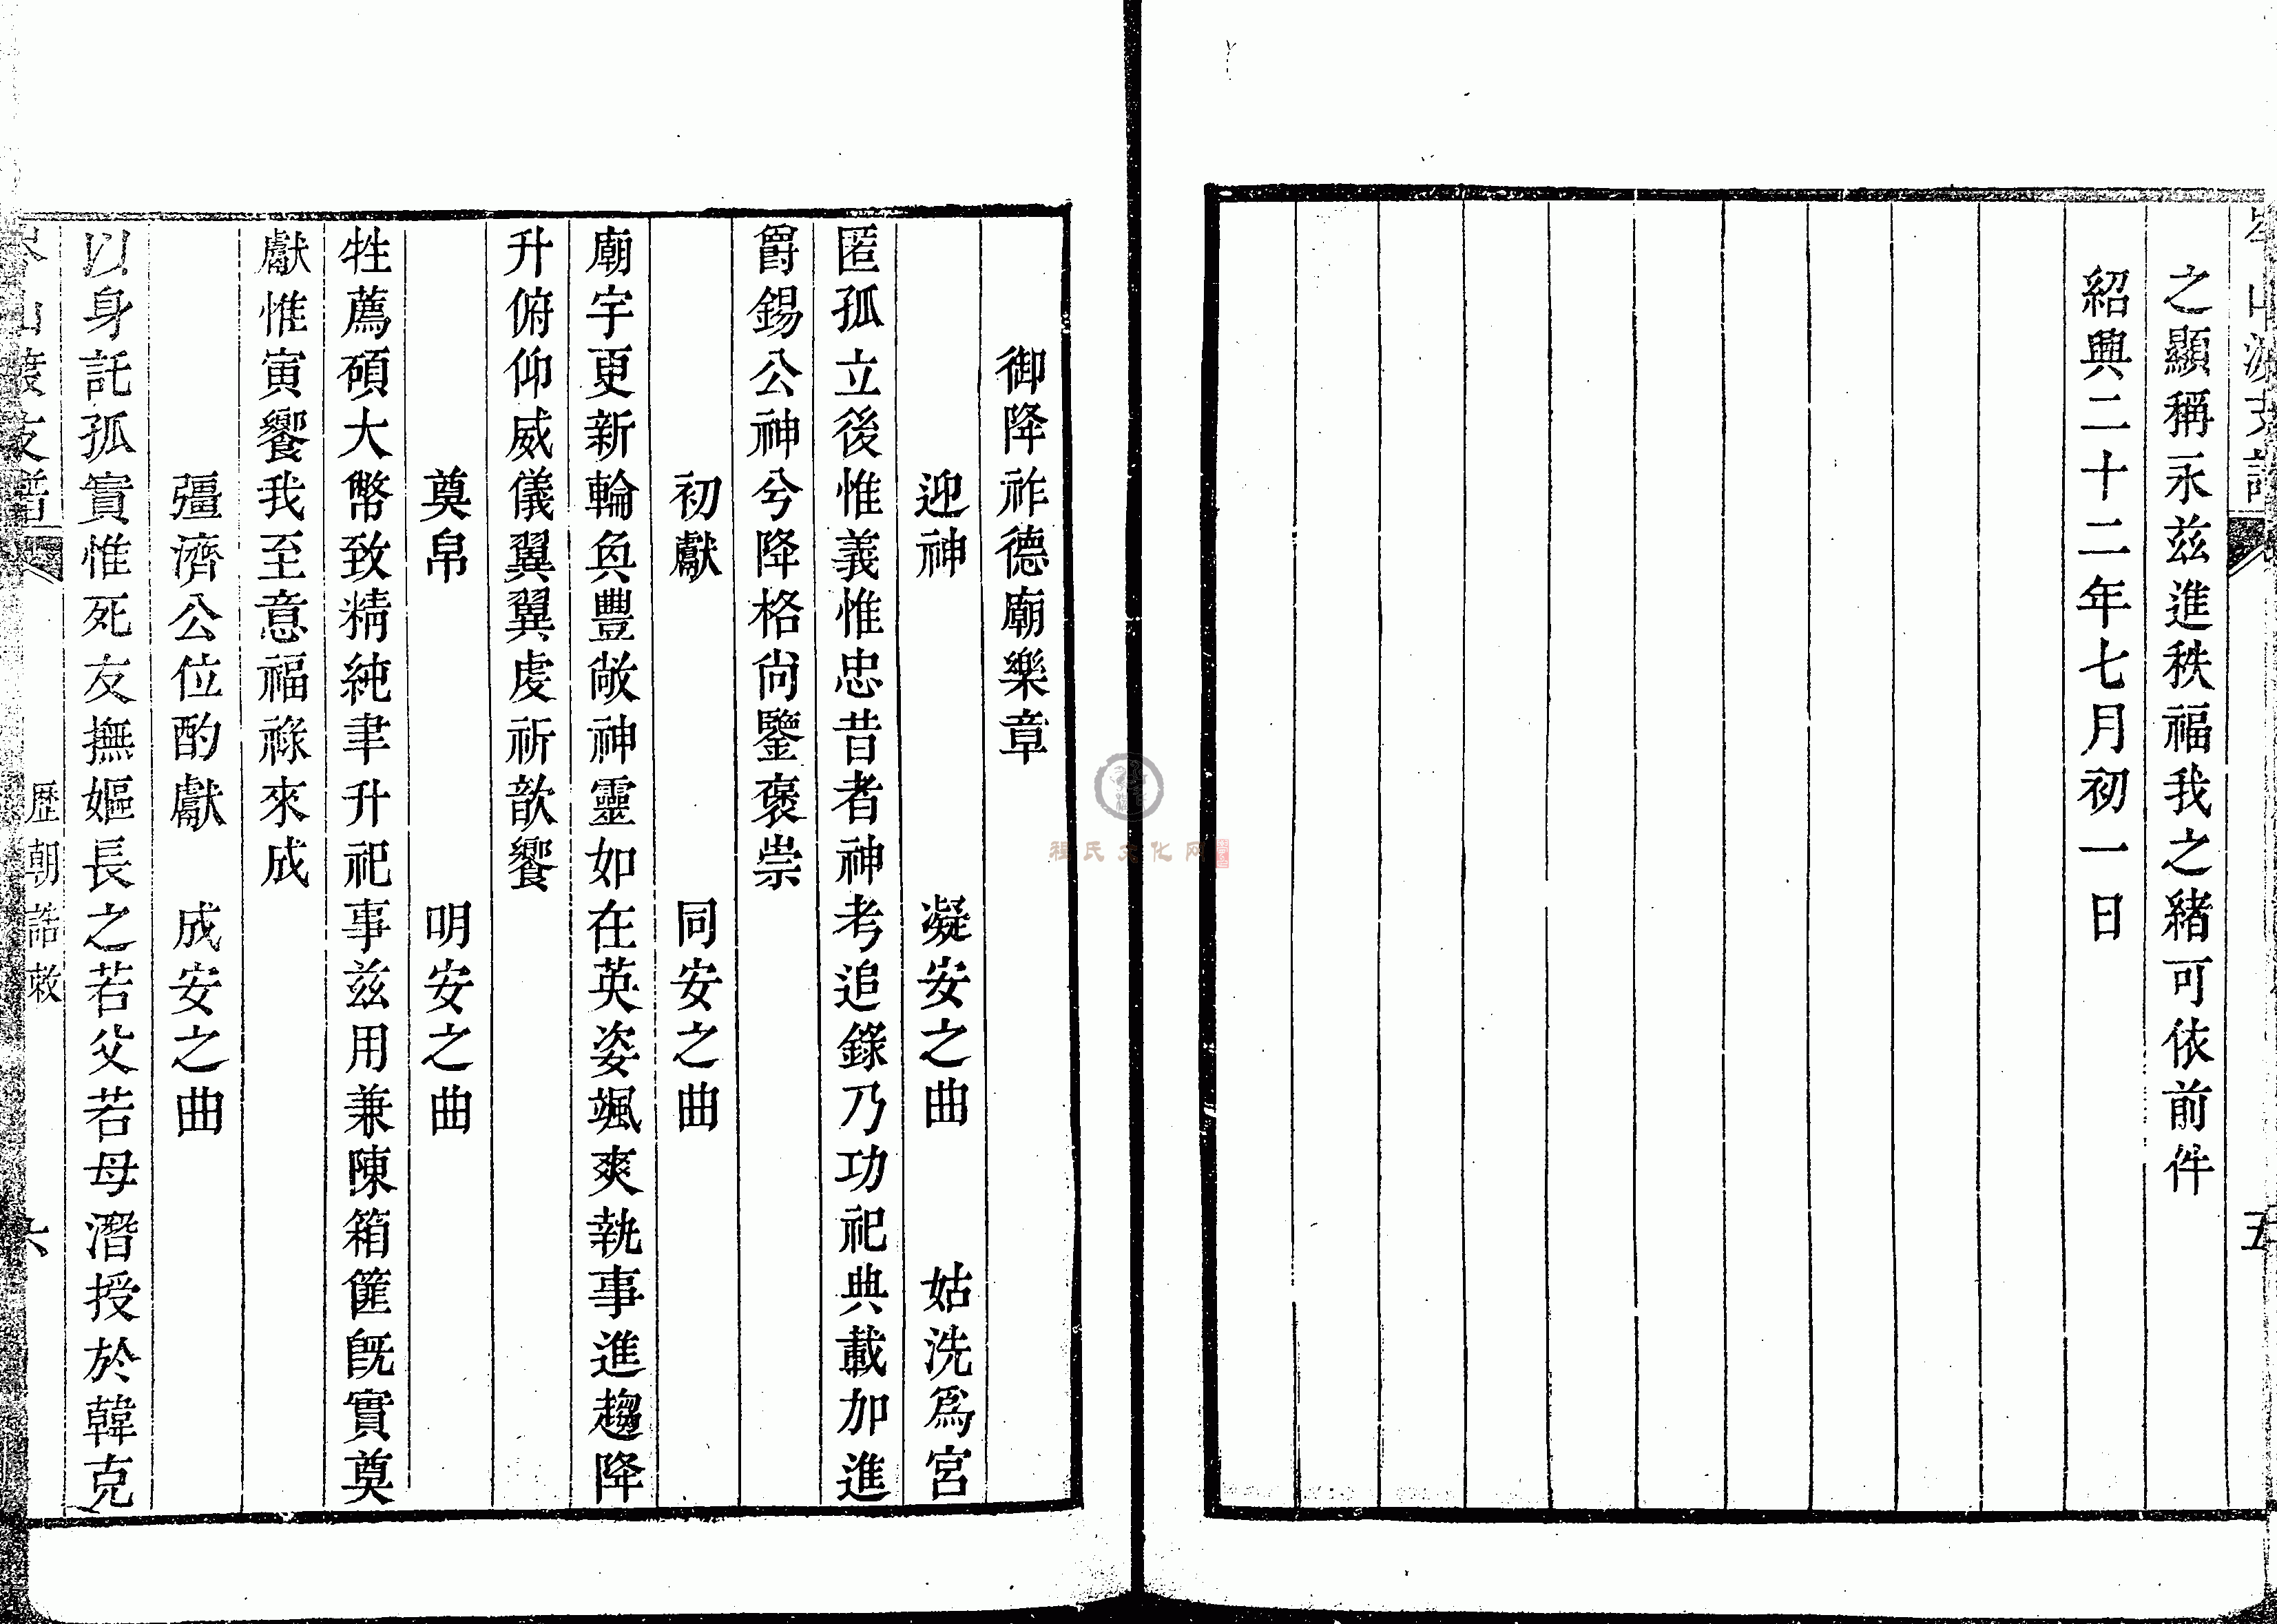 之顯稱永茲進秩福我之緒可依前件
紹興二十二年七月初一日
五
御降祚德廟樂章
迎神 凝安之曲 姑洗爲宮
匿孤立後惟義惟忠昔者神考追錄乃功祀典載加進
爵錫公神兮降格尙鑒褒崇
初獻 同安之曲
廟宇更新輪奐豐敞神靈如在英姿颯爽執事進趨降
升俯仰威儀翼翼虔祈歆饗
奠帛 明安之曲
牲薦碩大幣致精純聿升祀事茲用兼陳箱篚旣實奠
獻惟寅饗我至意福祿來成
彊濟公位酌獻 成安之曲
以身託孤實惟死友撫嫗長之若父若母潛授於韓克
歷朝誥敕 六
程氏文化网